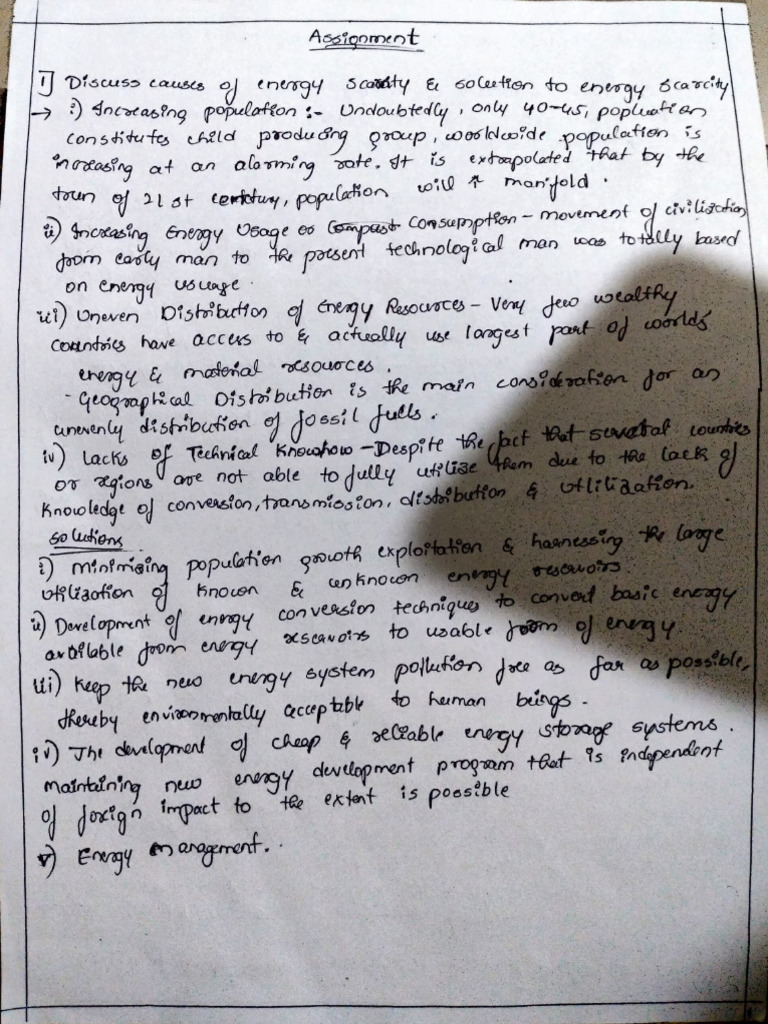 Assignment
1] Discuss causes of energy scarcity & solution to energy scarcity
→ i) Increasing population :- Undoubtedly, only 40-45, popluation
constitutes child producing group, worldwide population is
increasing at an alarming rate. It is extrapolated that by the
trun of 21st century, population will ↑ manifold.
ii) Increasing Energy Usage or Consumption - movement of civilization
from early man to the present technological man was totally based
on energy usuage.
iii) Uneven Distribution of Energy Resources - Very few wealthy
Countries have access to & actually use largest part of worlds
energy & material resources.
- Geographical Distribution is the main consideration for an
unevenly distribution of fossil fulls.
iv) Lacks of Technical Knowhow - Despite the fact that several countries
or regions are not able to fully utilise them due to the lack of
Knowledge of conversion, transmission, distribution & Utilization.
Solutions
i) Minimising population growth exploitation & harnessing the large
Utilization of Known & unknown energy reservoirs.
ii) Development of energy conversion techniques to convert basic energy
available from energy reservoirs to usable form of energy.
iii) Keep the new energy system pollution free as far as possible,
thereby environmentally acceptable to human beings.
iv) The development of cheap & reliable energy storage systems.
Maintaining new energy development program that is independent
of foreign impact to the extent is possible
v) Energy management.